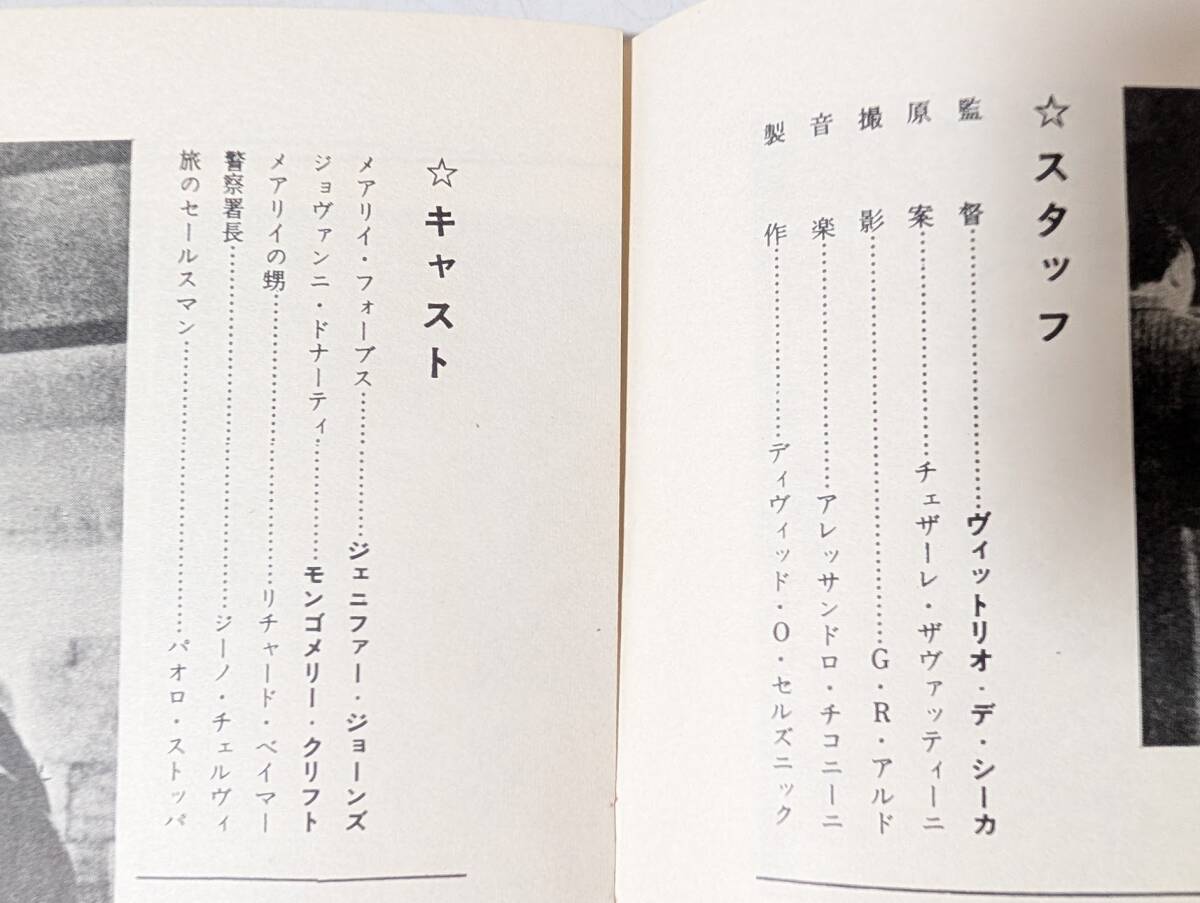 ☆スタッフ
監督……………ヴィットリオ・デ・シーカ
原案……………チェザーレ・ザヴァッティーニ
撮影……………G・R・アルド
音楽……………アレッサンドロ・チコニーニ
製作……………ディヴィッド・O・セルズニック
☆キャスト
メアリイ・フォーブス……………ジェニファー・ジョーンズ
ジョヴァンニ・ドナーティ……………モンゴメリー・クリフト
メアリイの甥……………リチャード・ベイマー
警察署長……………ジーノ・チェルヴィ
旅のセールスマン……………パオロ・ストッパ